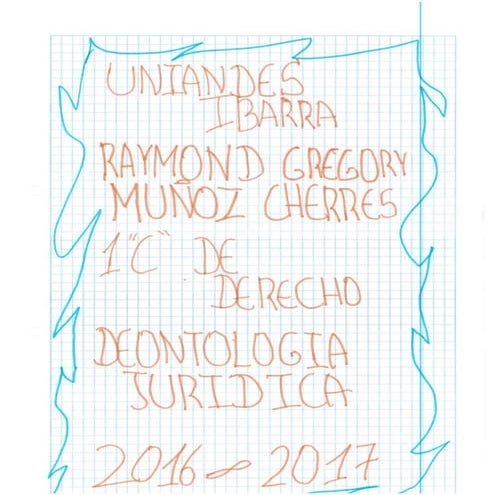 UNIANDES
IBARRA
RAYMOND GREGORY
MUÑOZ CHERRES
1 "C" DE
DERECHO
DEONTOLOGIA
JURIDICA
2016 ∞ 2017